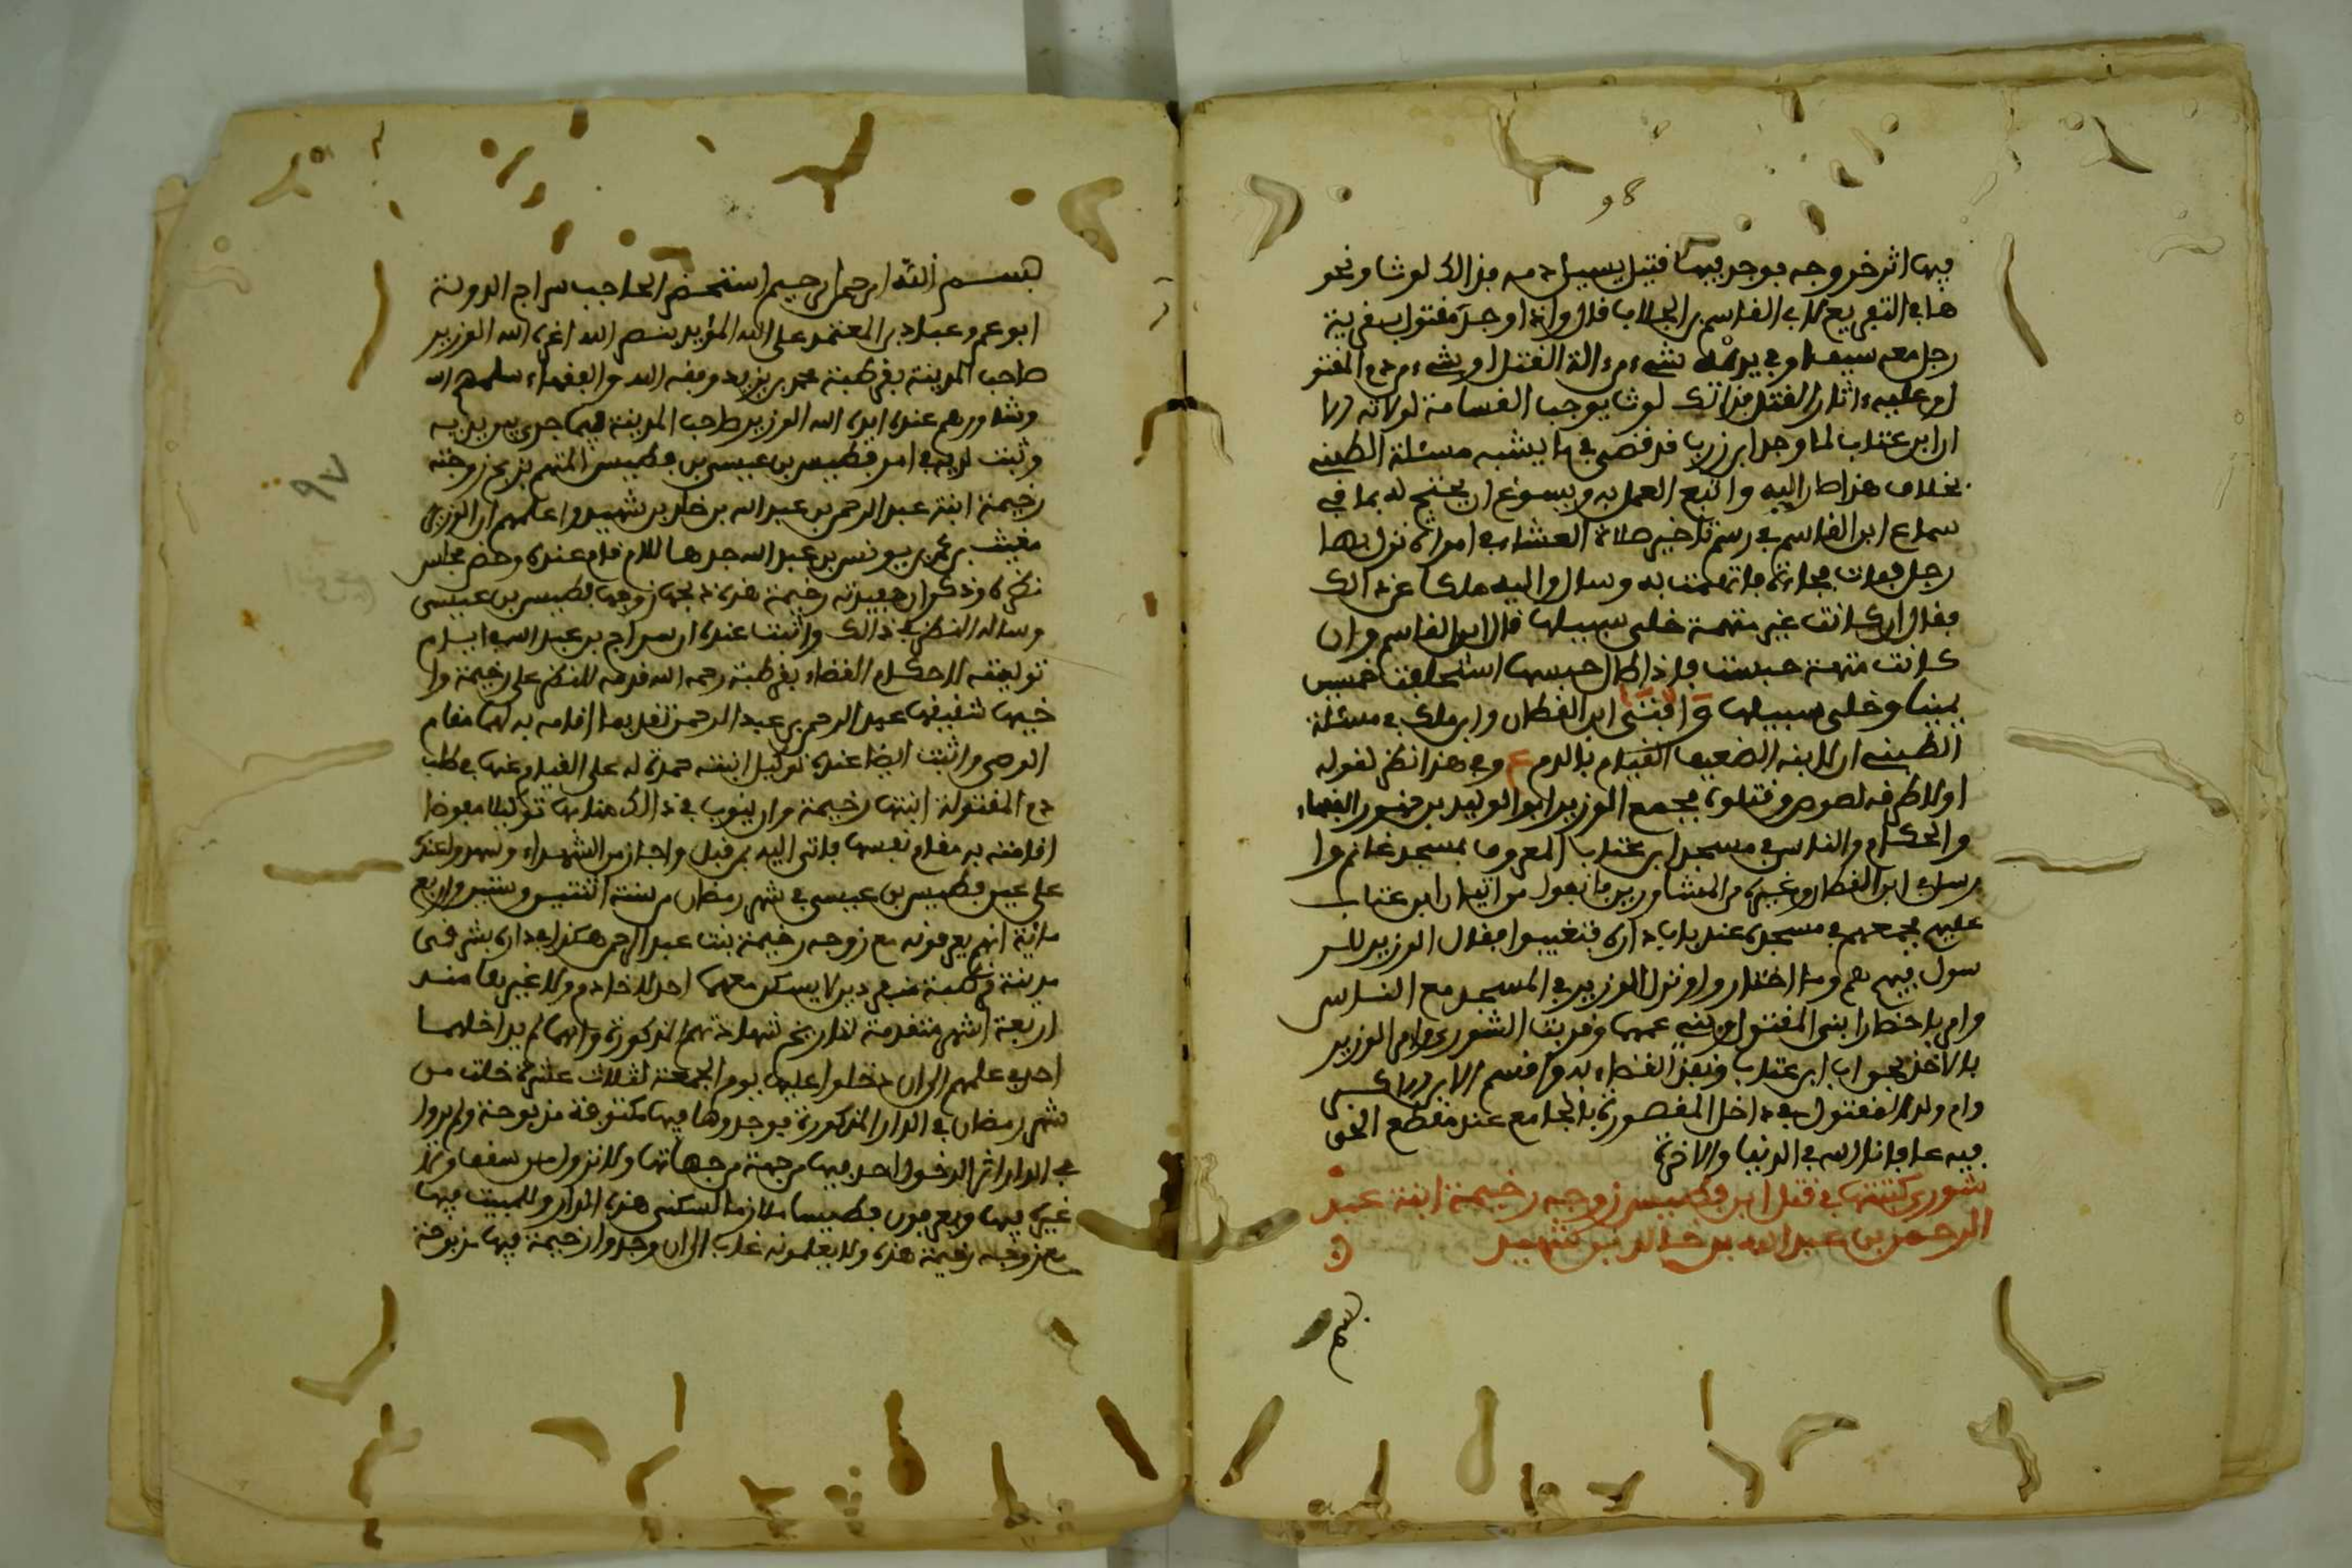 98
فيها اثر خروجه فوجد فيها قتيل يسيل دمه فذالك لوث ونحو
هذا في التفريع لابي القاسم بن الجلاب قال واذا وجد مقتول بقرية
رجل معه سيف او في يده شيء من الة القتل او شيء من دم المقتو
او عليه ءاثار القتل فذالك لوث يوجب القسامة لولاته
ان ابن عتاب لما وجد ابن زرب قد قضى في ما يشبه مسئلة الطبني
بخلاف هذا صار اليه واتبع العمل به ويسوغ ان يحتج له بما في
سماع ابن القاسم في رسم تاخير صلاة العشاء في امراة نزل بها
رجل فمات فجاءة فاتهمت به وسال واليه مالكا عن ذالك
فقال ان كانت غير متهمة خلى سبيلها قال ابن القاسم وان
كانت متهمة حبست فاذا طال حبسها استحلفت خمسين
يمينا وخلى سبيلها وافتى ابن القطان وابن مالك في مسئلة
الطبني ان للابنه الضعيف القيام بالدم ع وفي هذا نظر لقوله
اولا طرقه لصوص وقتلوه فجمع الوزير ابو الوليد بن جهور الفقهاء
والحكام والناس في مسجد ابن عتاب المعروف بمسجد غانم وا
رسل في ابن القطان وغيره من المشاورين فانفوا من اتيان ابن عتاب
عليهم فجمعهم في مسجده عند باب داره فتغيبوا فقال الوزير للر
سول فيهم هم وما اختاروا ونزل الوزير في المسجد مع الناس
وامر باحضار ابني المقتول وبني عمها وقريت الشورى وامر الوزير
بالاخذ بجواب ابن عتاب ونفذ القضاء به واقسم الابن
وام ولد المقتول في داخل المقصورة بالجامع عند مقطع الحق
فيه عافانا الله في الدنيا والاخرة
شورى كتبتها في قتل ابن فطيس زوجه رخيمة ابنة عبد
الرحمن بن عبد الله بن خالد بن شهيد
بسم
97
بسم الله الرحمن الرحيم استحضر الحاجب سراج الدولة
ابو عمرو عباد بن المعتمد على الله المؤيد بنصر الله اعزه الله الوزير
صاحب المدينة بقرطبة محمد بن يزيد وفقه الله والفقهاء سلمهم الله
وشاورهم عنده ايده الله الوزير صاحب المدينة فيما جرى بين يديه
وثبت لديه في امر فطيس بن عيسى بن فطيس المتهم بذبح زوجته
رخيمة ابنة عبد الرحمن بن عبد الله بن خالد بن شهيد واعلمهم ان الوزير
مغيث بن محمد بن يونس بن عبد الله جدها للام قام عنده وحضر مجلس
نظره وذكر ان حفيدته رخيمة هذه ذبحها زوجها فطيس بن عيسى
وساله النظر في ذالك واثبت عنده ان سراج بن عبد الله ايام
توليته لاحكام القضاء بقرطبة رحمه الله قدمه للنظر على رخيمة وا
خيها شقيقها عبد الرحمن بن عبد الرحمن تقديما اقامه به لها مقام
الوصي واثبت ايضا عنده توكيل ابنته حمدة له على القيام عنها في طلب
دم المقتولة ابنتها رخيمة وان ينوب في ذالك منابها توكيلا مفوضا
اقامته به مقام نفسها فاتى اليه من قبل واجاز من الشهداء وشهدوا عنده
على عين فطيس بن عيسى في شهر رمضان من سنة اثنتين وستين واربع
مائة انهم يعرفونه مع زوجه رخيمة بنت عبد الرحمن هكذا في دار بشرقي
مدينة قرطبة منفردين لا يسكن معهما احد لا خادم ولا غيرها منذ
اربعة اشهر متقدمة لتاريخ شهادتهم المذكورة وانهما لم يداخلهما
احد في علمهم الى ان دخلوا عليها يوم الجمعة لثلاث عشرة خلت من
شهر رمضان في الدار المذكورة فوجدوها فيها مكتوفة مذبوحة ولم يروا
في الدار اثر الدخول احد فيها من جهة من جهاتها ولا نزول من سقف ولا
غيره فيها ويعرفون فطيسا ملازما لسكنى هذه الدار وللمبيت فيها
مع زوجه رخيمة هذه ولا يعلمونه غاب الى ان وجدوا رخيمة فيها مذبوحة